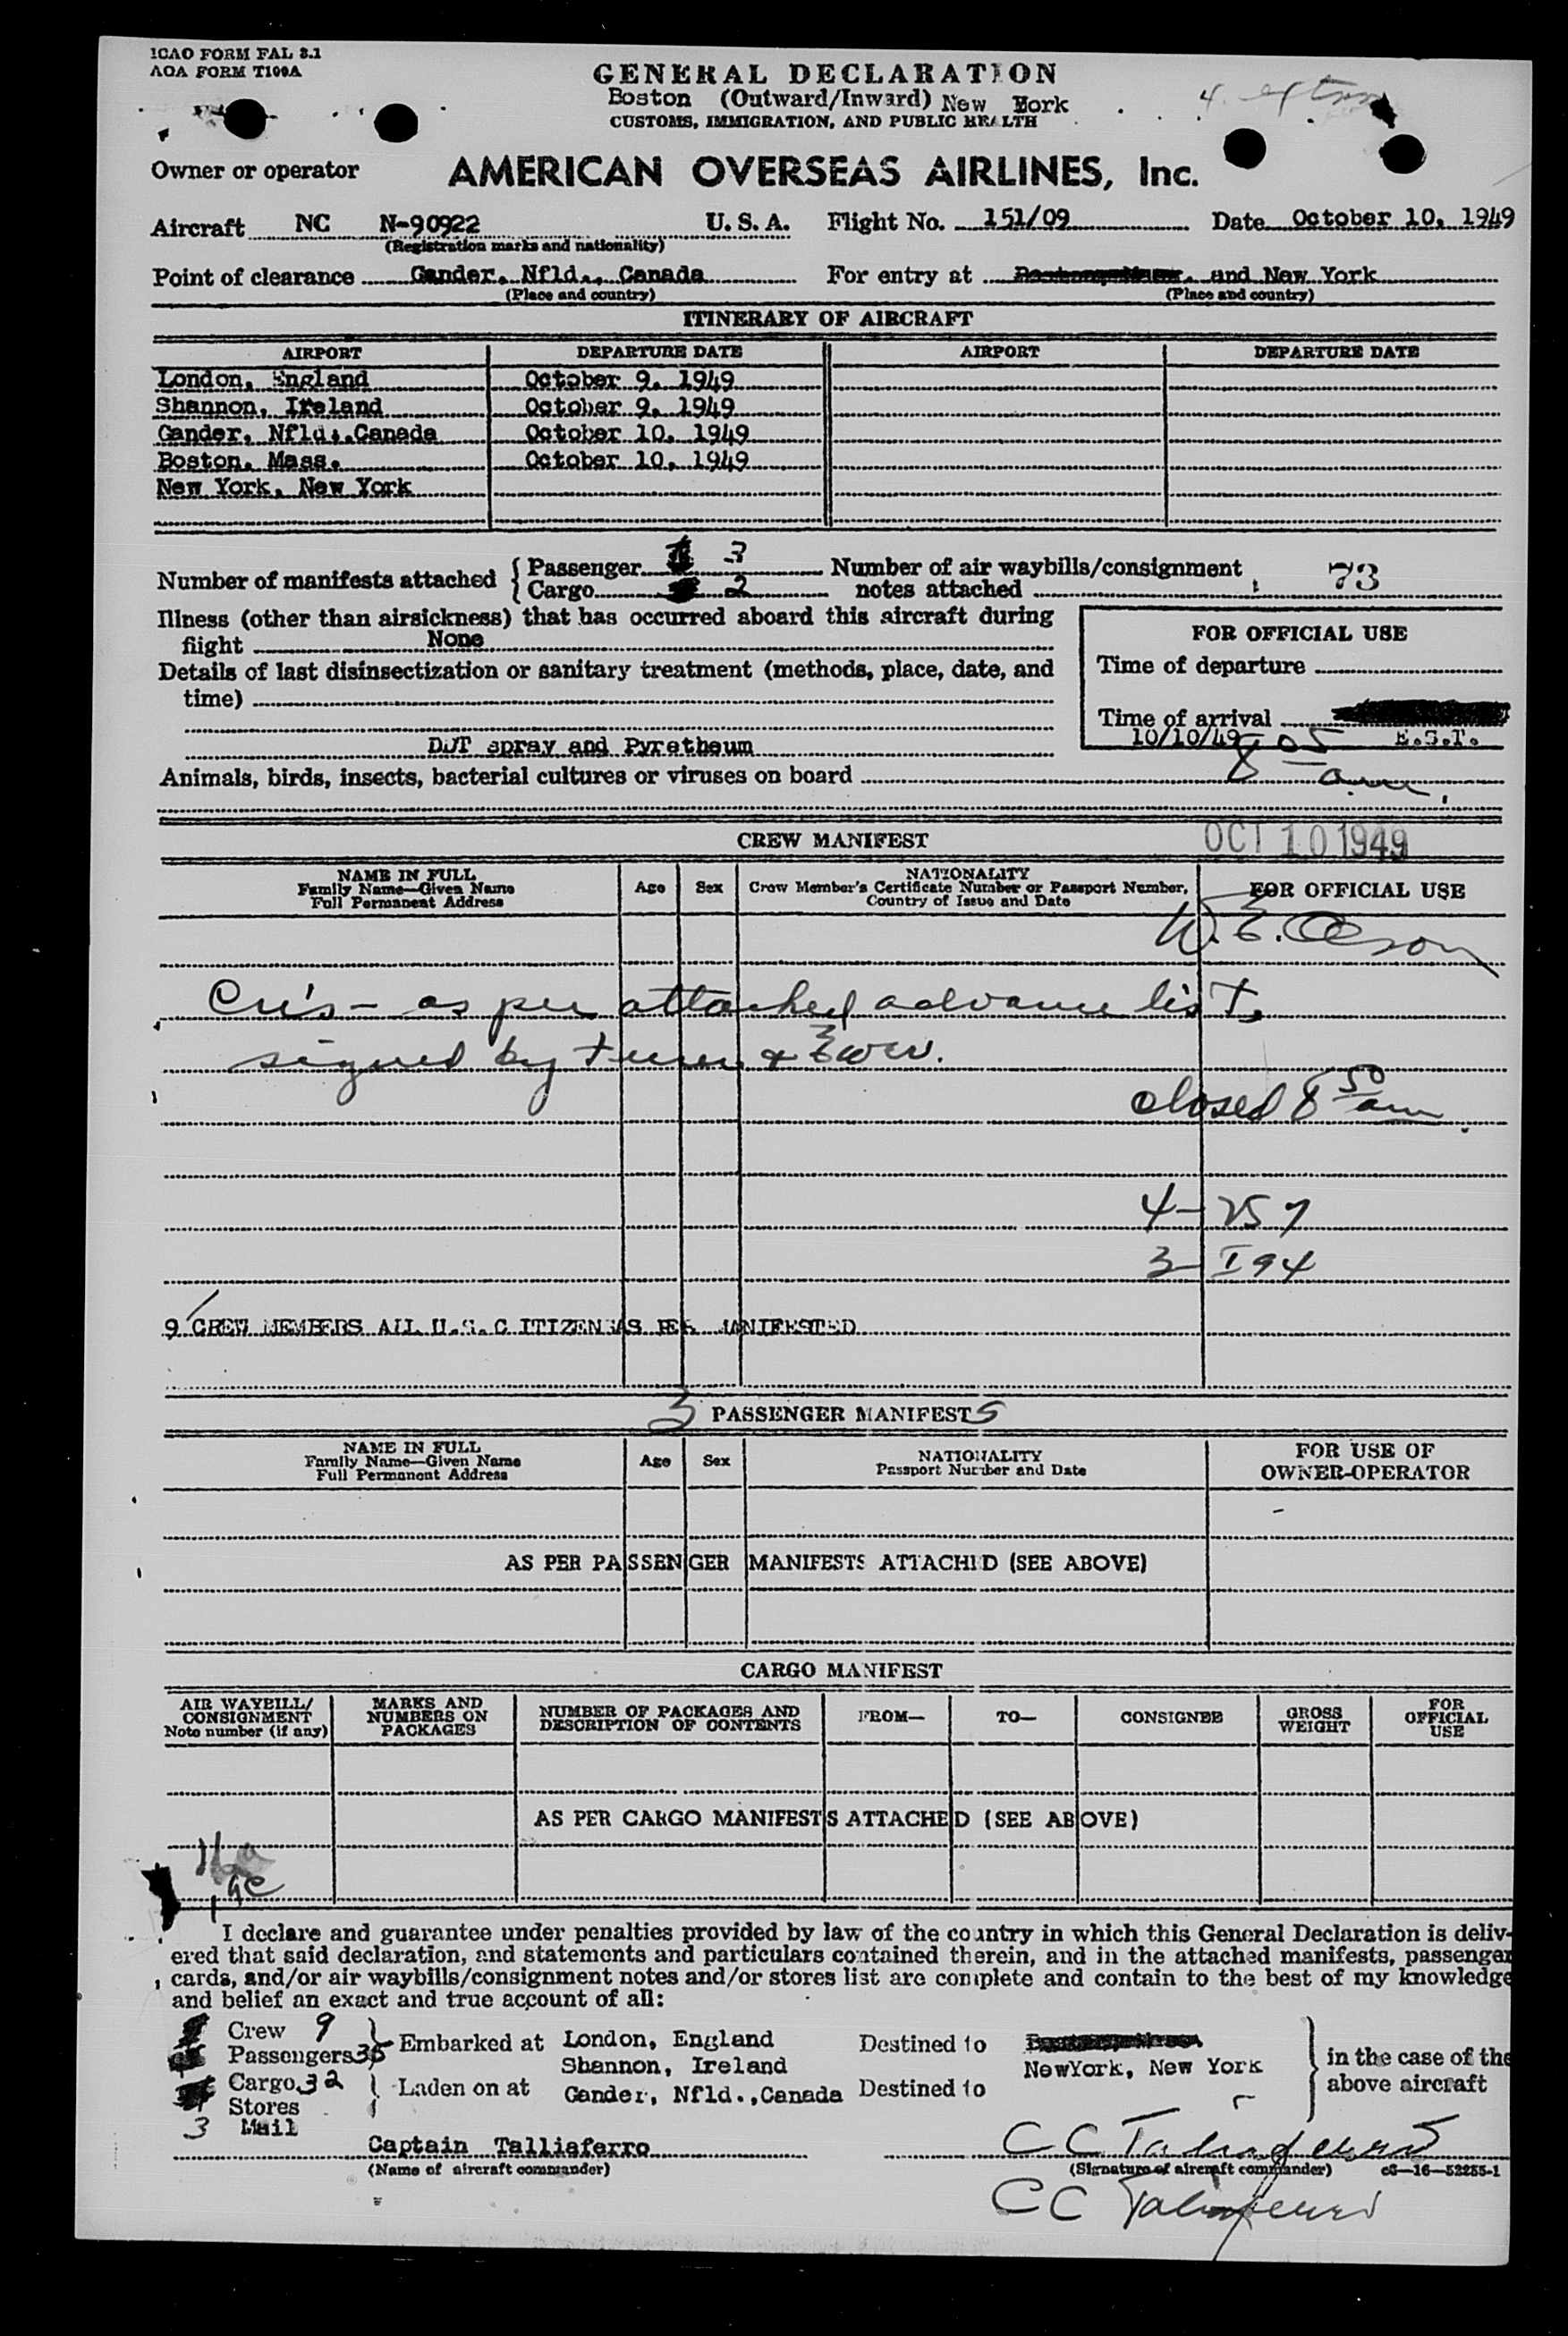 ICAO FORM FAL 3.1
AOA FORM T100A
GENERAL DECLARATION
Boston (Outward/Inward) New York
CUSTOMS, IMMIGRATION, AND PUBLIC HEALTH
4
Owner or operator AMERICAN OVERSEAS AIRLINES, Inc.
Aircraft NC N-90922 U. S. A. Flight No. 151/09 Date October 10, 1949
(Registration marks and nationality)
Point of clearance Gander, Nfld., Canada For entry at and New York
(Place and country) (Place and country)
ITINERARY OF AIRCRAFT
AIRPORT DEPARTURE DATE AIRPORT DEPARTURE DATE
London, England October 9, 1949
Shannon, Ireland October 9, 1949
Gander, Nfld.,Canada October 10, 1949
Boston, Mass. October 10, 1949
New York, New York
Number of manifests attached { Passenger 3 Number of air waybills/consignment
Cargo 2 notes attached 73
Illness (other than airsickness) that has occurred aboard this aircraft during
flight None
FOR OFFICIAL USE
Details of last disinsectization or sanitary treatment (methods, place, date, and
time)
Time of departure
Time of arrival
10/10/49 E.S.T.
8 05 am.
DDT spray and Pyretheum
Animals, birds, insects, bacterial cultures or viruses on board
CREW MANIFEST
OCT 10 1949
NAME IN FULL
Family Name—Given Name
Full Permanent Address
Age Sex
NATIONALITY
Crew Member's Certificate Number or Passport Number,
Country of Issue and Date
FOR OFFICIAL USE
W. E. Olson
as per attached advance list,
signed by
closed 8 50 am
4- 257
3- I 94
9 CREW MEMBERS ALL U.S.C ITIZENS AS PER MANIFESTED
3 PASSENGER MANIFESTS
NAME IN FULL
Family Name—Given Name
Full Permanent Address
Age Sex
NATIONALITY
Passport Number and Date
FOR USE OF
OWNER-OPERATOR
AS PER PASSENGER MANIFESTS ATTACHED (SEE ABOVE)
CARGO MANIFEST
AIR WAYBILL/
CONSIGNMENT
Note number (if any)
MARKS AND
NUMBERS ON
PACKAGES
NUMBER OF PACKAGES AND
DESCRIPTION OF CONTENTS
FROM— TO— CONSIGNEE
GROSS
WEIGHT
FOR
OFFICIAL
USE
AS PER CARGO MANIFESTS ATTACHED (SEE ABOVE)
I declare and guarantee under penalties provided by law of the country in which this General Declaration is deliv-
ered that said declaration, and statements and particulars contained therein, and in the attached manifests, passenger
cards, and/or air waybills/consignment notes and/or stores list are complete and contain to the best of my knowledge
and belief an exact and true account of all:
Crew 9
Passengers 35
Cargo 32
Stores
3 Mail
Embarked at London, England
Shannon, Ireland
Laden on at Gander, Nfld.,Canada
Destined to
NewYork, New York
Destined to
in the case of the
above aircraft
Captain Talliaferro C C Taliaferro
(Name of aircraft commander) (Signature of aircraft commander) c6—16—52255-1
C C Taliaferro